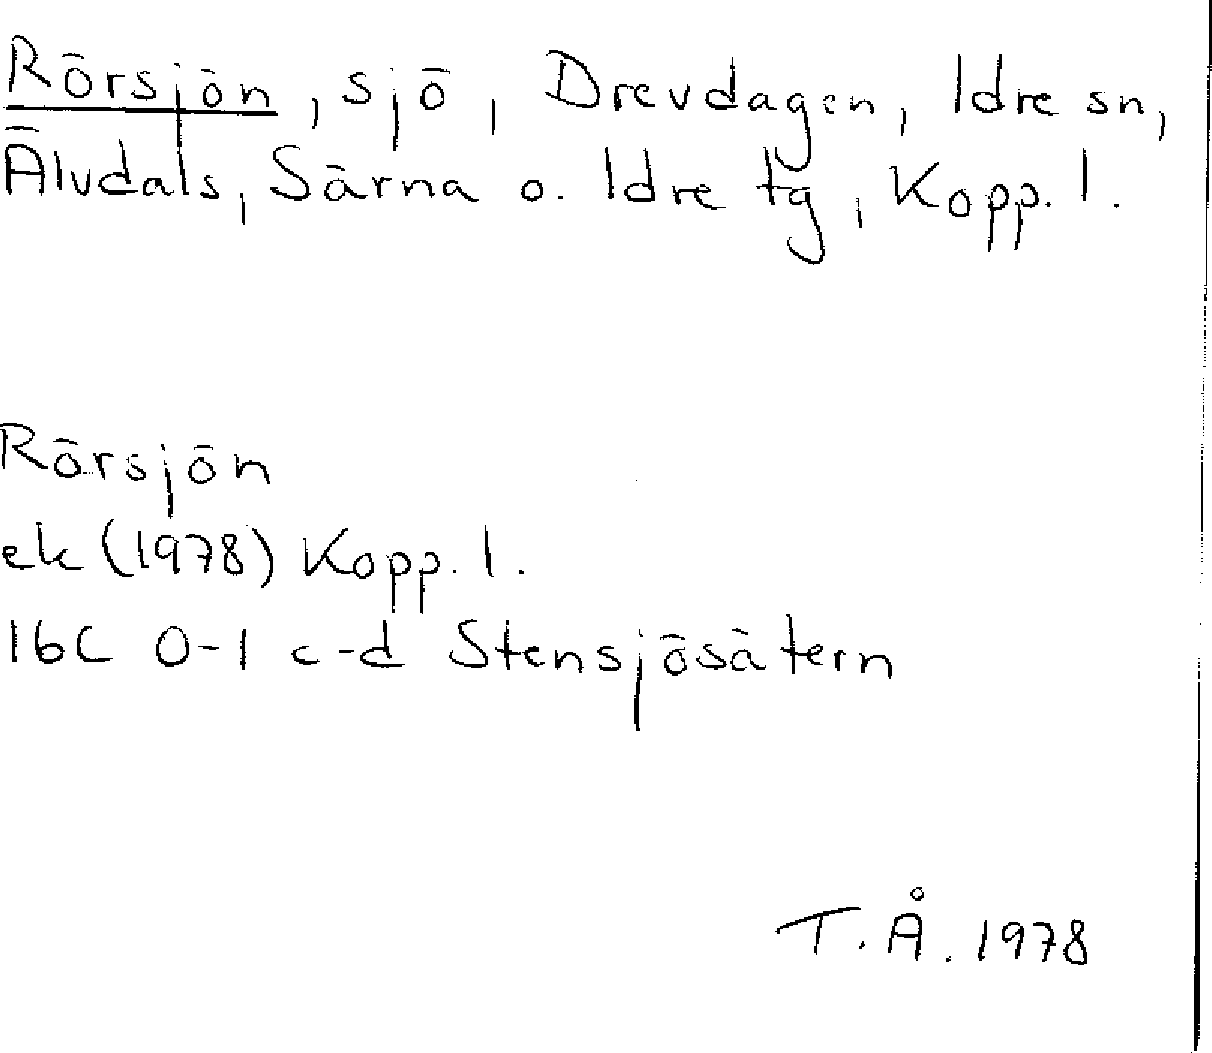 Rörsjön, sjö, Drevdagen, Idre sn,
Älvdals, Särna o. Idre tg, Kopp. l.
Rörsjön
ek (1978) Kopp. l.
16C 0-1 c-d Stensjösätern
T. Å. 1978